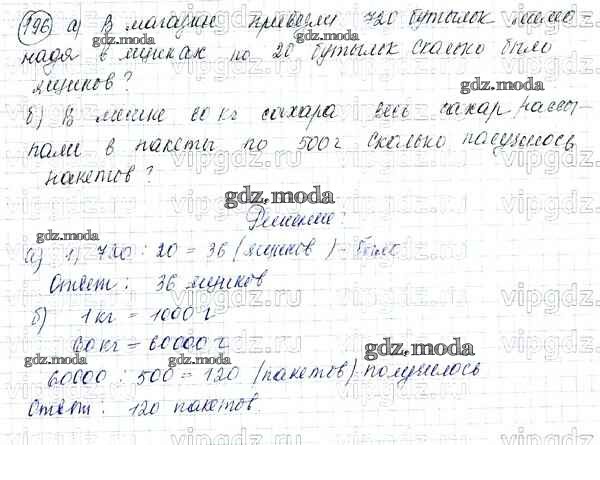 196 а) В магазин привезли 720 бутылок лимо
надa в ящиках по 20 бутылок сколько было
ящиков?
gdz.moda
б) В мешке 60 кг сахара весь сахар рассы
пали в пакеты по 500 г Сколько получилось
пакетов?
gdz.moda
Решение:
gdz.moda
а) 1) 720 : 20 = 36 (ящиков) - было
Ответ: 36 ящиков
vipgdz.ru
б) 1 кг = 1000 г
60 кг = 60000 г
gdz.moda gdz.moda gdz.moda
60000 : 500 = 120 (пакетов) получилось
Ответ: 120 пакетов.
vipgdz.ru
gdz.moda